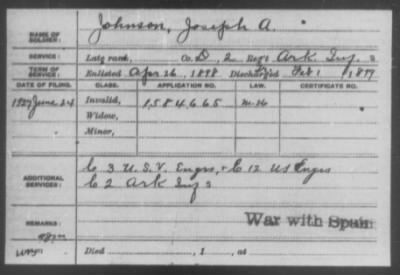 NAME OF SOLDIER: Johnson, Joseph A.
SERVICE: Late rank, Co. D, 2 Reg't Ark Inf.
TERM OF SERVICE: Enlisted Apr 26, 1898 Discharged Feb 1 1899
DATE OF FILING. CLASS. APPLICATION NO. LAW. CERTIFICATE NO.
1927 June 24 Invalid, 1,584,665
Widow,
Minor,
ADDITIONAL SERVICES: C 3 U.S.V. Engrs, + C 12 US Engrs
C 2 Ark Inf
REMARKS: War with Spain
Died , 1 , at